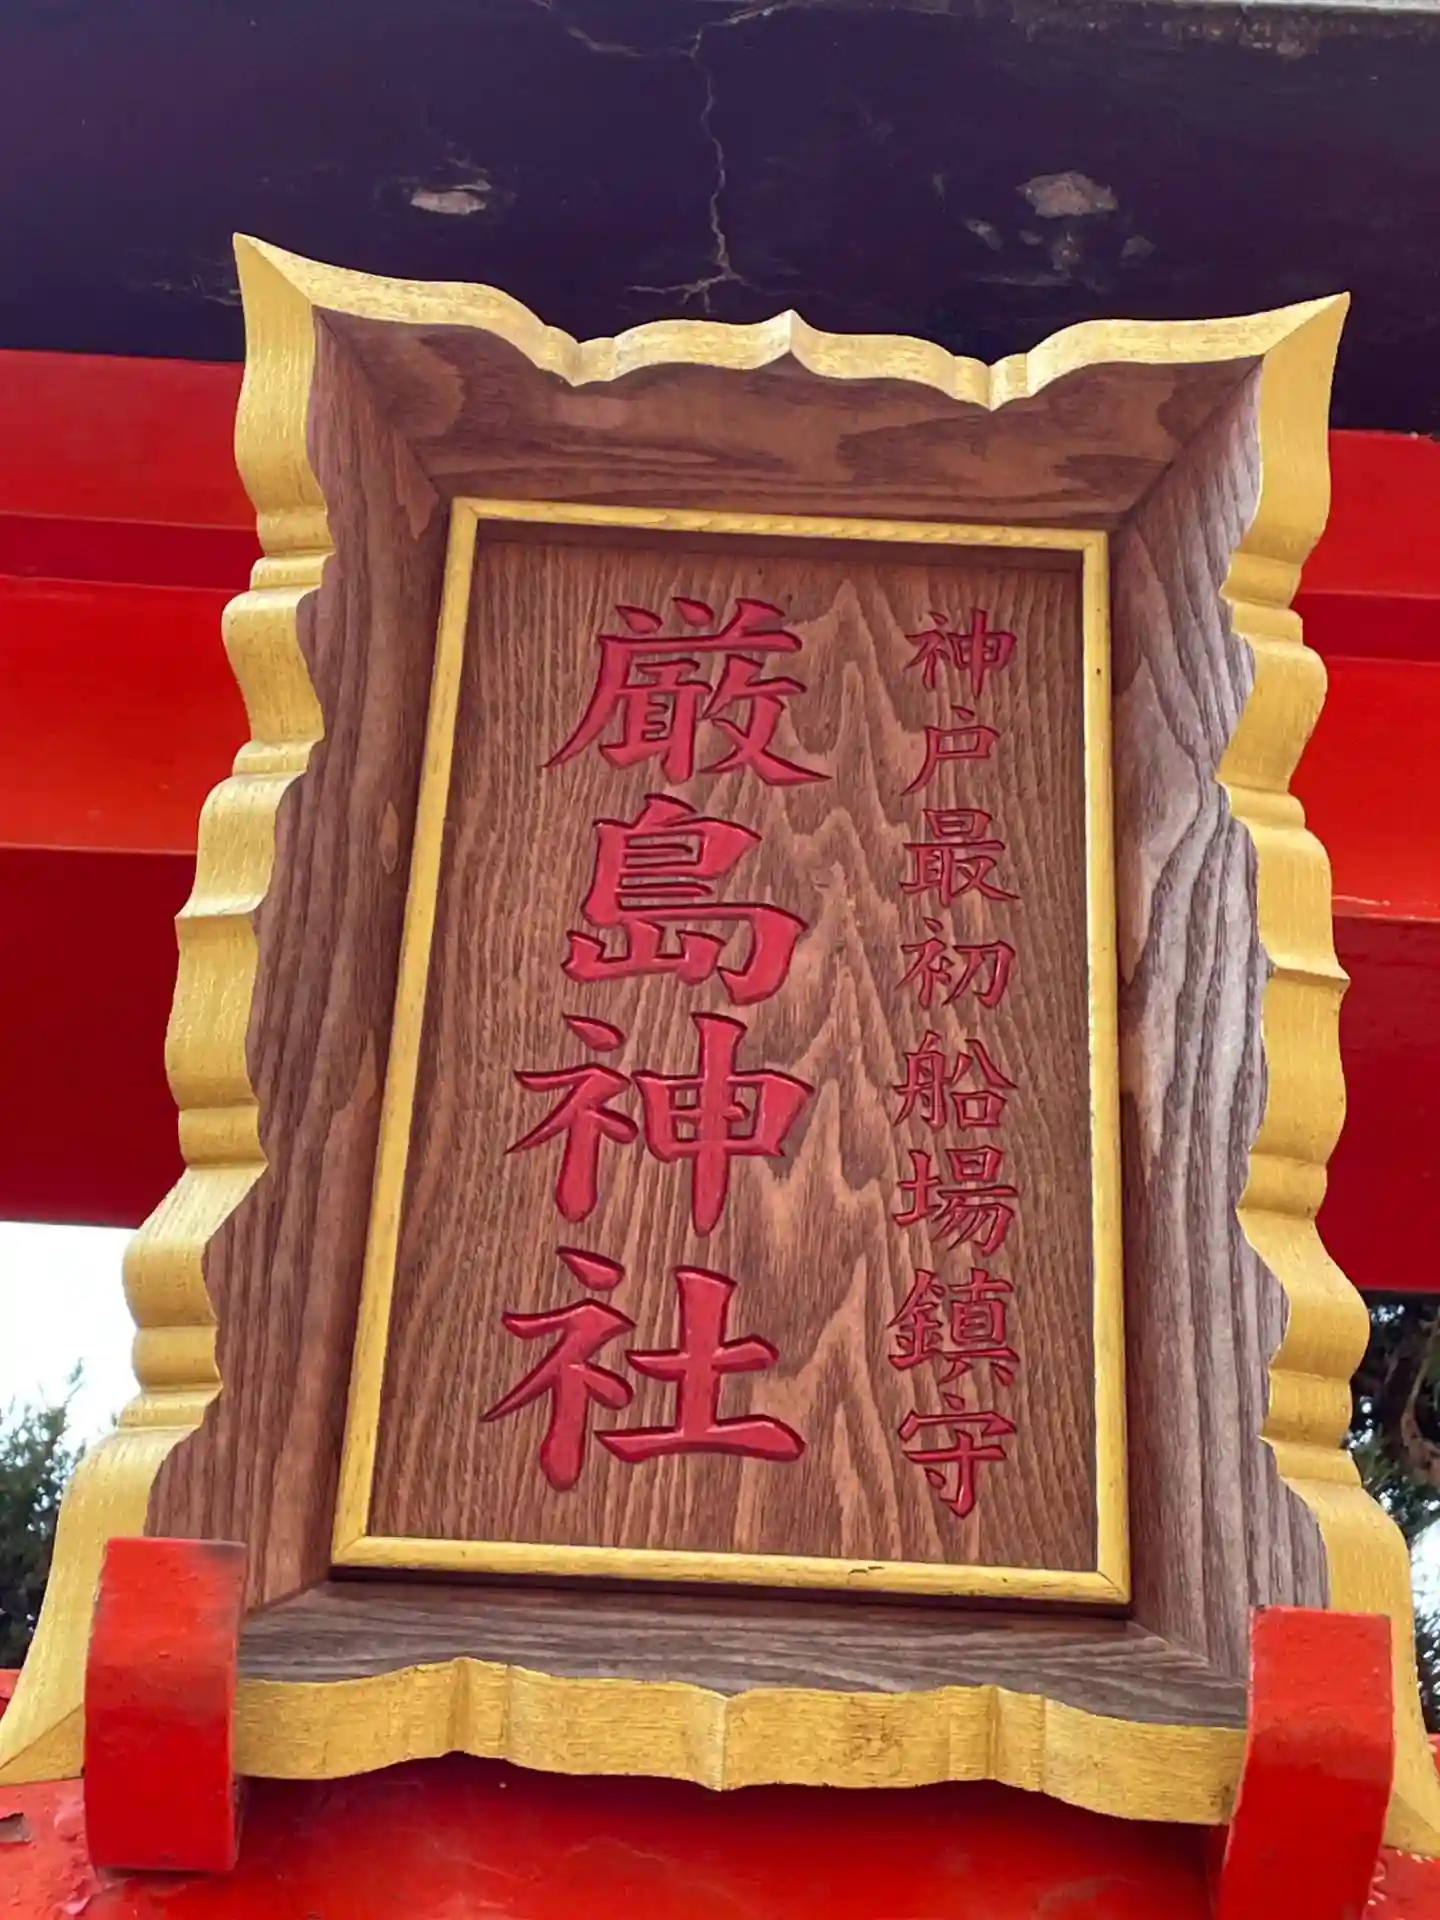 神戸最初船場鎮守
厳島神社